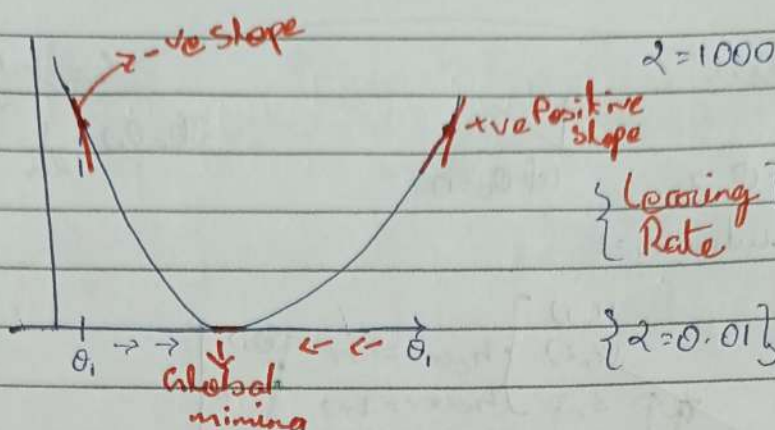 -ve Slope
α = 1000
+ve Positive
slope
{ Learing
Rate
θ₁ → → ← ← θ₁
{α = 0.01}
Global
miming